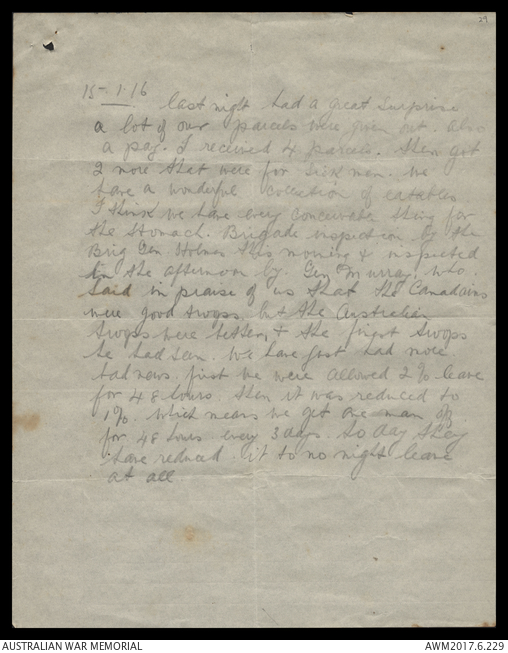 29
15-1.16 last night had a great surprise
a lot of our parcels were given out. also
a pay. I received 4 parcels. then got
2 more that were for sick men. we
have a wonderful collection of eatables
I think we have every conceivable thing for
the stomach. Brigade inspection by the
Brig Gen. Holmes this morning & inspected
in the afternoon by Gen Murray who
said in praise of us that the Canadians
were good troops but the Australian
troops were better & the finest troops
he had seen. We have just had more
bad news. first we were allowed 2% leave
for 48 hours. then it was reduced to
1%. which means we get one man off
for 48 hours every 3 days. to day they
have reduced it to no night leave
at all
AUSTRALIAN WAR MEMORIAL
AWM2017.6.229